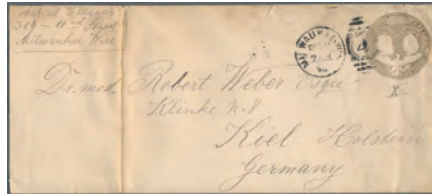 319 – 11th Street
Milwaukee Wisc
MILWAUKEE, WIS.
Dr. med. Robert Weber Esqu
Klinke N. 8
Kiel. Holstein
Germany